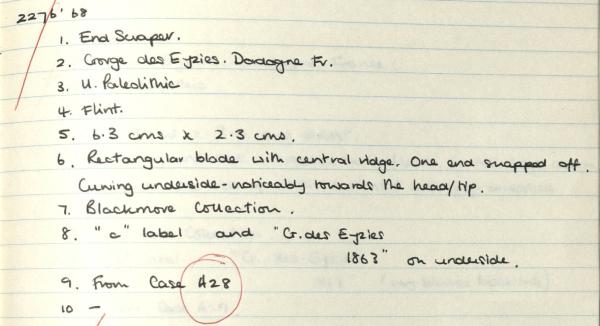 2276'68
1. End Scraper.
2. Gorge des Eyzies. Dordogne Fr.
3. U. Paleolithic
4. Flint.
5. 6.3 cms x 2.3 cms.
6. Rectangular blade with central ridge. One end snapped off.
Curving underside - noticeably towards the head/tip.
7. Blackmore Collection.
8. "a" label and "Gr. des Eyzies
1863" on underside.
9. From Case A28
10 -